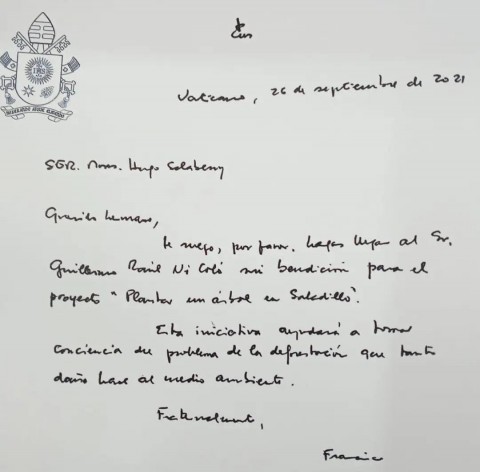 Vaticano, 26 de septiembre de 2021
SER. Mons. Hugo Salaberry
Querido hermano,
te ruego, por favor, hagas llegar al Sr.
Guillermo Raúl Nicoló mi bendición para el
proyecto "Plantar un árbol en Saladillo".
Esta iniciativa ayudará a tomar
conciencia del problema de la deforestación que tanto
daño hace al medio ambiente.
Fraternalmente,
Francisco